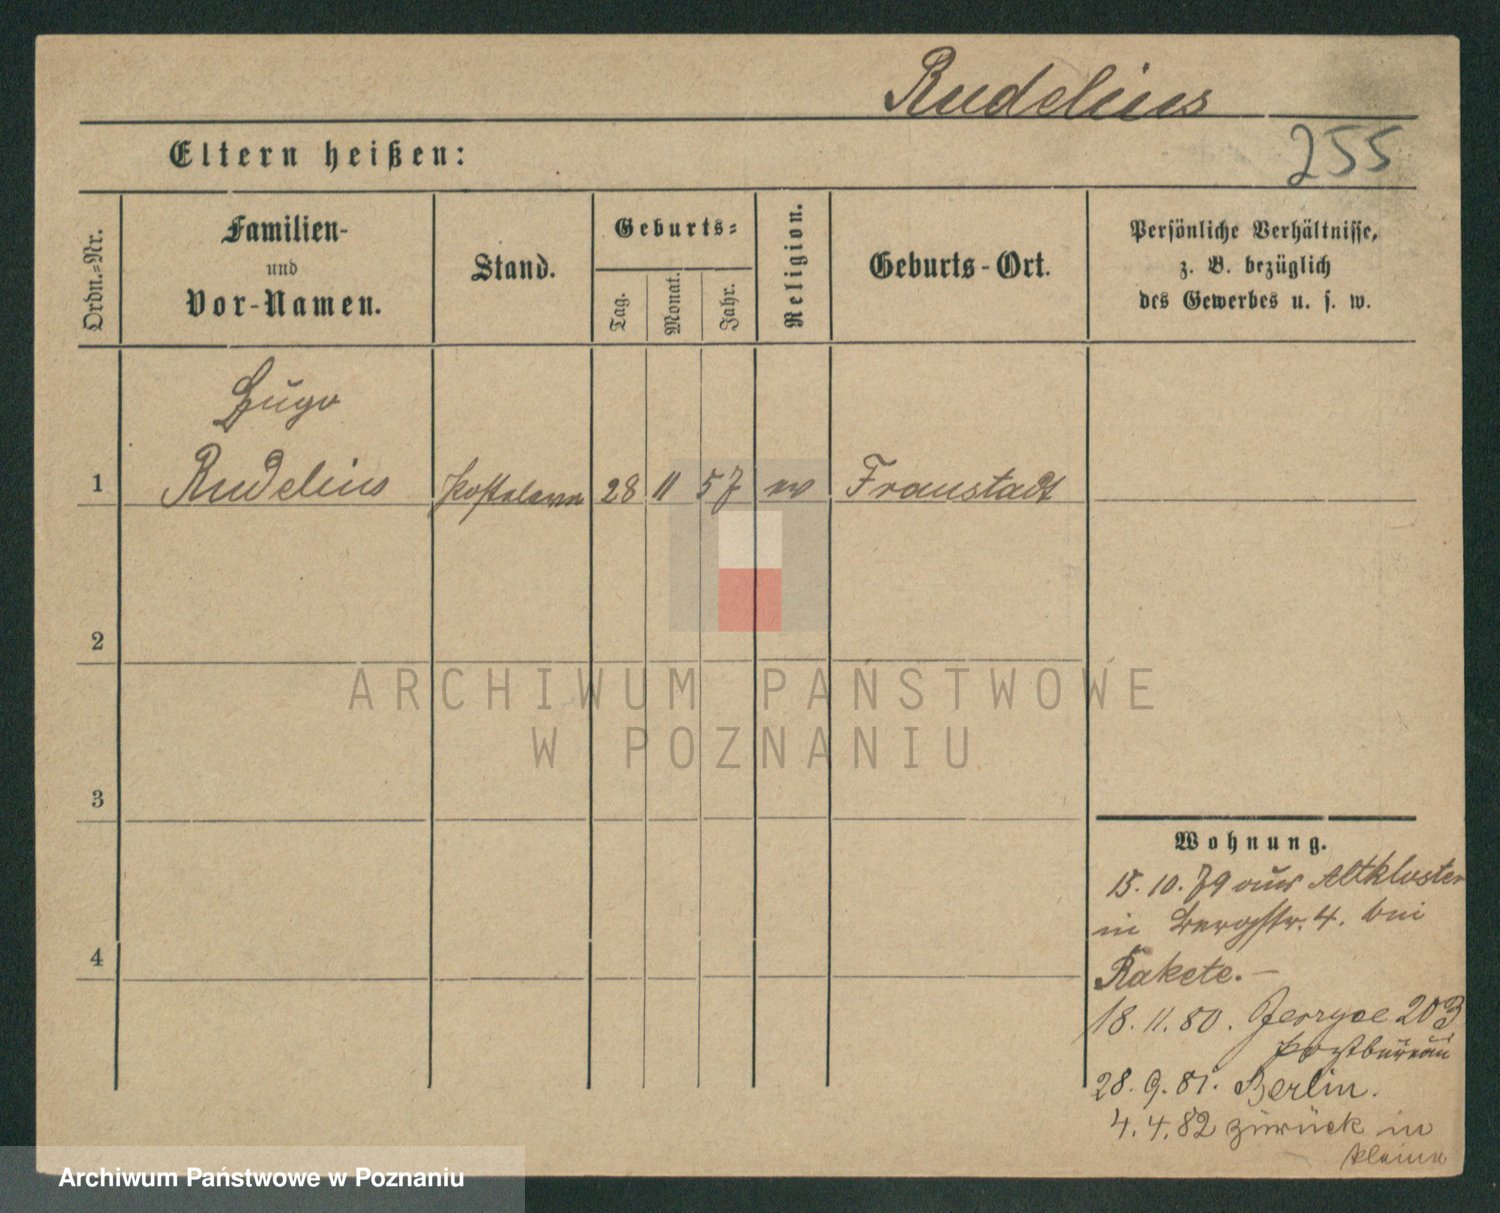 Rudelius
255
Eltern heißen:
Ordn.=Nr.
Familien-
und
Vor-Namen.
Stand.
Geburts=
Tag.
Monat.
Jahr.
Religion.
Geburts-Ort.
Persönliche Verhältnisse,
z. B. bezüglich
des Gewerbes u. s. w.
Hugo
1 Rudelius 28 11 57 ev Fraustadt
2
3
4
Wohnung.
15. 10. 79 aus Altkloster
in Bergstr. 4. bei
Rakete.
18. 11. 80. Jerzyce 203
Postbureau
28. 9. 81. Berlin.
4. 4. 82 zurück in
ARCHIWUM PAŃSTWOWE
W POZNANIU
Archiwum Państwowe w Poznaniu